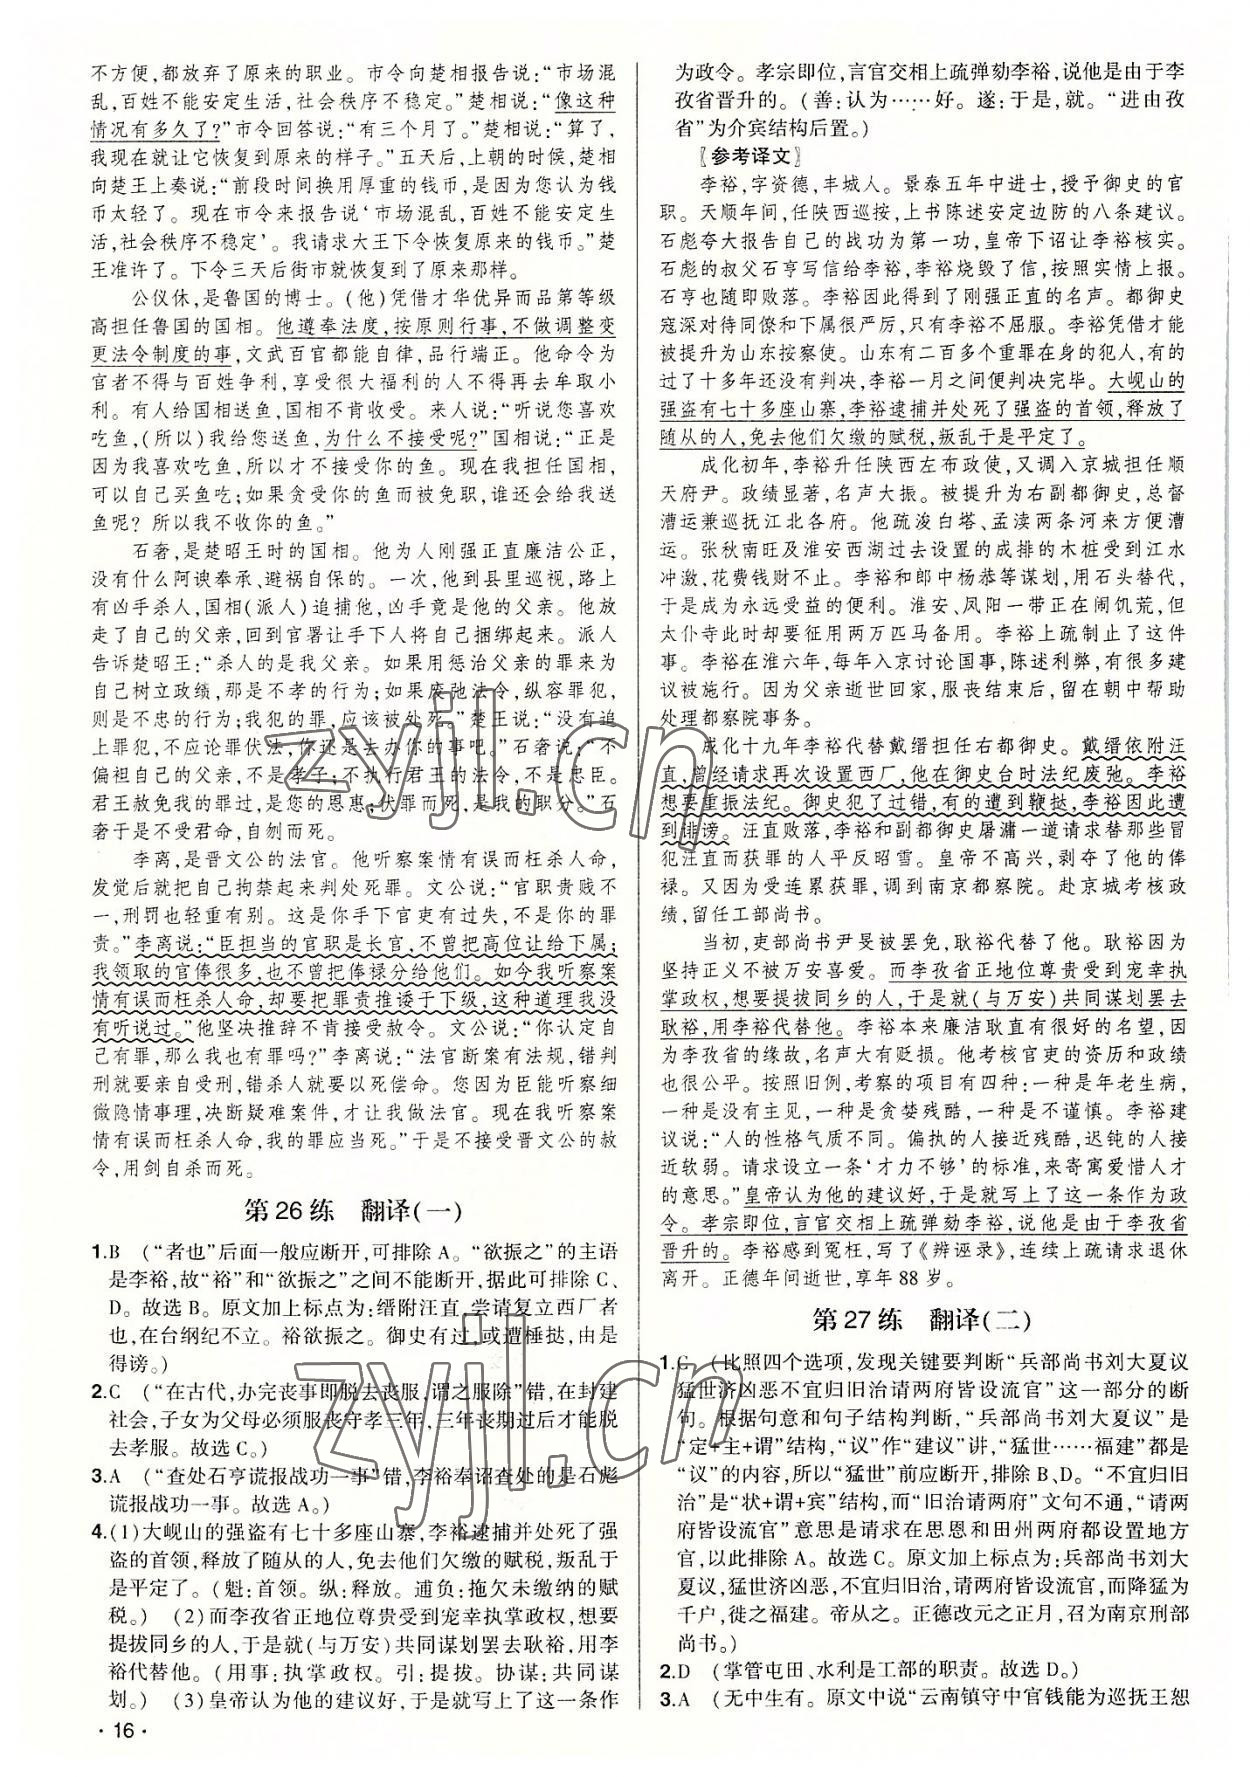 不方便,都放弃了原来的职业。市令向楚相报告说:“市场混
乱,百姓不能安定生活,社会秩序不稳定。”楚相说:“像这种
情况有多久了?”市令回答说:“有三个月了。”楚相说:“算了,
我现在就让它恢复到原来的样子。”五天后,上朝的时候,楚相
向楚王上奏说:“前段时间换用厚重的钱币,是因为您认为钱
币太轻了。现在市令来报告说‘市场混乱,百姓不能安定生
活,社会秩序不稳定’。我请求大王下令恢复原来的钱币。”楚
王准许了。下令三天后街市就恢复到了原来那样。
公仪休,是鲁国的博士。(他)凭借才华优异而品第等级
高担任鲁国的国相。他遵奉法度,按原则行事,不做调整变
更法令制度的事,文武百官都能自律,品行端正。他命令为
官者不得与百姓争利,享受很大福利的人不得再去牟取小
利。有人给国相送鱼,国相不肯收受。来人说:“听说您喜欢
吃鱼,(所以)我给您送鱼,为什么不接受呢?”国相说:“正是
因为我喜欢吃鱼,所以才不接受你的鱼。现在我担任国相,
可以自己买鱼吃;如果贪受你的鱼而被免职,谁还会给我送
鱼呢?所以我不收你的鱼。”
石奢,是楚昭王时的国相。他为人刚强正直廉洁公正,
没有什么阿谀奉承、避祸自保的。一次,他到县里巡视,路上
有凶手杀人,国相(派人)追捕他,凶手竟是他的父亲。他放
走了自己的父亲,回到官署让手下人将自己捆绑起来。派人
告诉楚昭王:“杀人的是我父亲。如果用惩治父亲的罪来为
自己树立政绩,那是不孝的行为;如果废弛法令,纵容罪犯,
则是不忠的行为;我犯的罪,应该被处死。”楚王说:“没有追
上罪犯,不应论罪伏法,你还是去办你的事吧。”石奢说:“不
偏袒自己的父亲,不是孝子;不执行君王的法令,不是忠臣。
君王赦免我的罪过,是您的恩惠;伏罪而死,是我的职分。”石
奢于是不受君命,自刎而死。
李离,是晋文公的法官。他听察案情有误而枉杀人命,
发觉后就把自己拘禁起来判处死罪。文公说:“官职贵贱不
一,刑罚也轻重有别。这是你手下官吏有过失,不是你的罪
责。”李离说:“臣担当的官职是长官,不曾把高位让给下属;
我领取的官俸很多,也不曾把俸禄分给他们。如今我听察案
情有误而枉杀人命,却要把罪责推诿于下级,这种道理我没
有听说过。”他坚决推辞不肯接受赦令。文公说:“你认定自
己有罪,那么我也有罪吗?”李离说:“法官断案有法规,错判
刑就要亲自受刑,错杀人就要以死偿命。您因为臣能听察细
微隐情事理,决断疑难案件,才让我做法官。现在我听察案
情有误而枉杀人命,我的罪应当死。”于是不接受晋文公的赦
令,用剑自杀而死。
第26练 翻译(一)
1.B (“者也”后面一般应断开,可排除A。“欲振之”的主语
是李裕,故“裕”和“欲振之”之间不能断开,据此可排除C、
D。故选B。原文加上标点为:缙附汪直,尝请复立西厂者
也,在台纲纪不立。裕欲振之。御史有过,或遭棰挞,由是
得谤。)
2.C (“在古代,办完丧事即脱去丧服,谓之服除”错,在封建
社会,子女为父母必须服丧守孝三年,三年丧期过后才能脱
去孝服。故选C。)
3.A (“查处石亨谎报战功一事”错,李裕奉诏查处的是石彪
谎报战功一事。故选A。)
4.(1)大岘山的强盗有七十多座山寨,李裕逮捕并处死了强
盗的首领,释放了随从的人,免去他们欠缴的赋税,叛乱于
是平定了。(魁:首领。纵:释放。逋负:拖欠未缴纳的赋
税。) (2)而李孜省正地位尊贵受到宠幸执掌政权,想要
提拔同乡的人,于是就(与万安)共同谋划罢去耿裕,用李
裕代替他。(用事:执掌政权。引:提拔。协谋:共同谋
划。) (3)皇帝认为他的建议好,于是就写上了这一条作
·16·
为政令。孝宗即位,言官交相上疏弹劾李裕,说他是由于李
孜省晋升的。(善:认为……好。遂:于是,就。“进由孜
省”为介宾结构后置。)
〖参考译文〗
李裕,字资德,丰城人。景泰五年中进士,授予御史的官
职。天顺年间,任陕西巡按,上书陈述安定边防的八条建议。
石彪夸大报告自己的战功为第一功,皇帝下诏让李裕核实。
石彪的叔父石亨写信给李裕,李裕烧毁了信,按照实情上报。
石亨也随即败落。李裕因此得到了刚强正直的名声。都御史
寇深对待同僚和下属很严厉,只有李裕不屈服。李裕凭借才能
被提升为山东按察使。山东有二百多个重罪在身的犯人,有的
过了十多年还没有判决,李裕一月之间便判决完毕。大岘山的
强盗有七十多座山寨,李裕逮捕并处死了强盗的首领,释放了
随从的人,免去他们欠缴的赋税,叛乱于是平定了。
成化初年,李裕升任陕西左布政使,又调入京城担任顺
天府尹。政绩显著,名声大振。被提升为右副都御史,总督
漕运兼巡抚江北各府。他疏浚白塔、孟渎两条河来方便漕
运。张秋南旺及淮安西湖过去设置的成排的木桩受到江水
冲激,花费钱财不止。李裕和郎中杨恭等谋划,用石头替代,
于是成为永远受益的便利。淮安、凤阳一带正在闹饥荒,但
太仆寺此时却要征用两万匹马备用。李裕上疏制止了这件
事。李裕在淮六年,每年入京讨论国事,陈述利弊,有很多建
议被施行。因为父亲逝世回家,服丧结束后,留在朝中帮助
处理都察院事务。
成化十九年李裕代替戴缙担任右都御史。戴缙依附汪
直,曾经请求再次设置西厂,他在御史台时法纪废弛。李裕
想要重振法纪。御史犯了过错,有的遭到鞭挞,李裕因此遭
到诽谤。汪直败落,李裕和副都御史屠滽一道请求替那些冒
犯汪直而获罪的人平反昭雪。皇帝不高兴,剥夺了他的俸
禄。又因为受连累获罪,调到南京都察院。赴京城考核政
绩,留任工部尚书。
当初,吏部尚书尹旻被罢免,耿裕代替了他。耿裕因为
坚持正义不被万安喜爱。而李孜省正地位尊贵受到宠幸执
掌政权,想要提拔同乡的人,于是就(与万安)共同谋划罢去
耿裕,用李裕代替他。李裕本来廉洁耿直有很好的名望,因
为李孜省的缘故,名声大有贬损。他考核官吏的资历和政绩
也很公平。按照旧例,考察的项目有四种:一种是年老生病,
一种是没有主见,一种是贪婪残酷,一种是不谨慎。李裕建
议说:“人的性格气质不同。偏执的人接近残酷,迟钝的人接
近软弱。请求设立一条‘才力不够’的标准,来寄寓爱惜人才
的意思。”皇帝认为他的建议好,于是就写上了这一条作为政
令。孝宗即位,言官交相上疏弹劾李裕,说他是由于李孜省
晋升的。李裕感到冤枉,写了《辨诬录》,连续上疏请求退休
离开。正德年间逝世,享年88岁。
第27练 翻译(二)
1.C (比照四个选项,发现关键要判断“兵部尚书刘大夏议
猛世济凶恶不宜归旧治请两府皆设流官”这一部分的断
句。根据句意和句子结构判断,“兵部尚书刘大夏议”是
“定+主+谓”结构,“议”作“建议”讲,“猛世……福建”都是
“议”的内容,所以“猛世”前应断开,排除B、D。“不宜归旧
治”是“状+谓+宾”结构,而“旧治请两府”文句不通,“请两
府皆设流官”意思是请求在思恩和田州两府都设置地方
官,以此排除A。故选C。原文加上标点为:兵部尚书刘大
夏议,猛世济凶恶,不宜归旧治,请两府皆设流官,而降猛为
千户,徙之福建。帝从之。正德改元之正月,召为南京刑部
尚书。)
2.D (掌管屯田、水利是工部的职责。故选D。)
3.A (无中生有。原文中说“云南镇守中官钱能为巡抚王恕
zyjl.cn
zyjl.cn